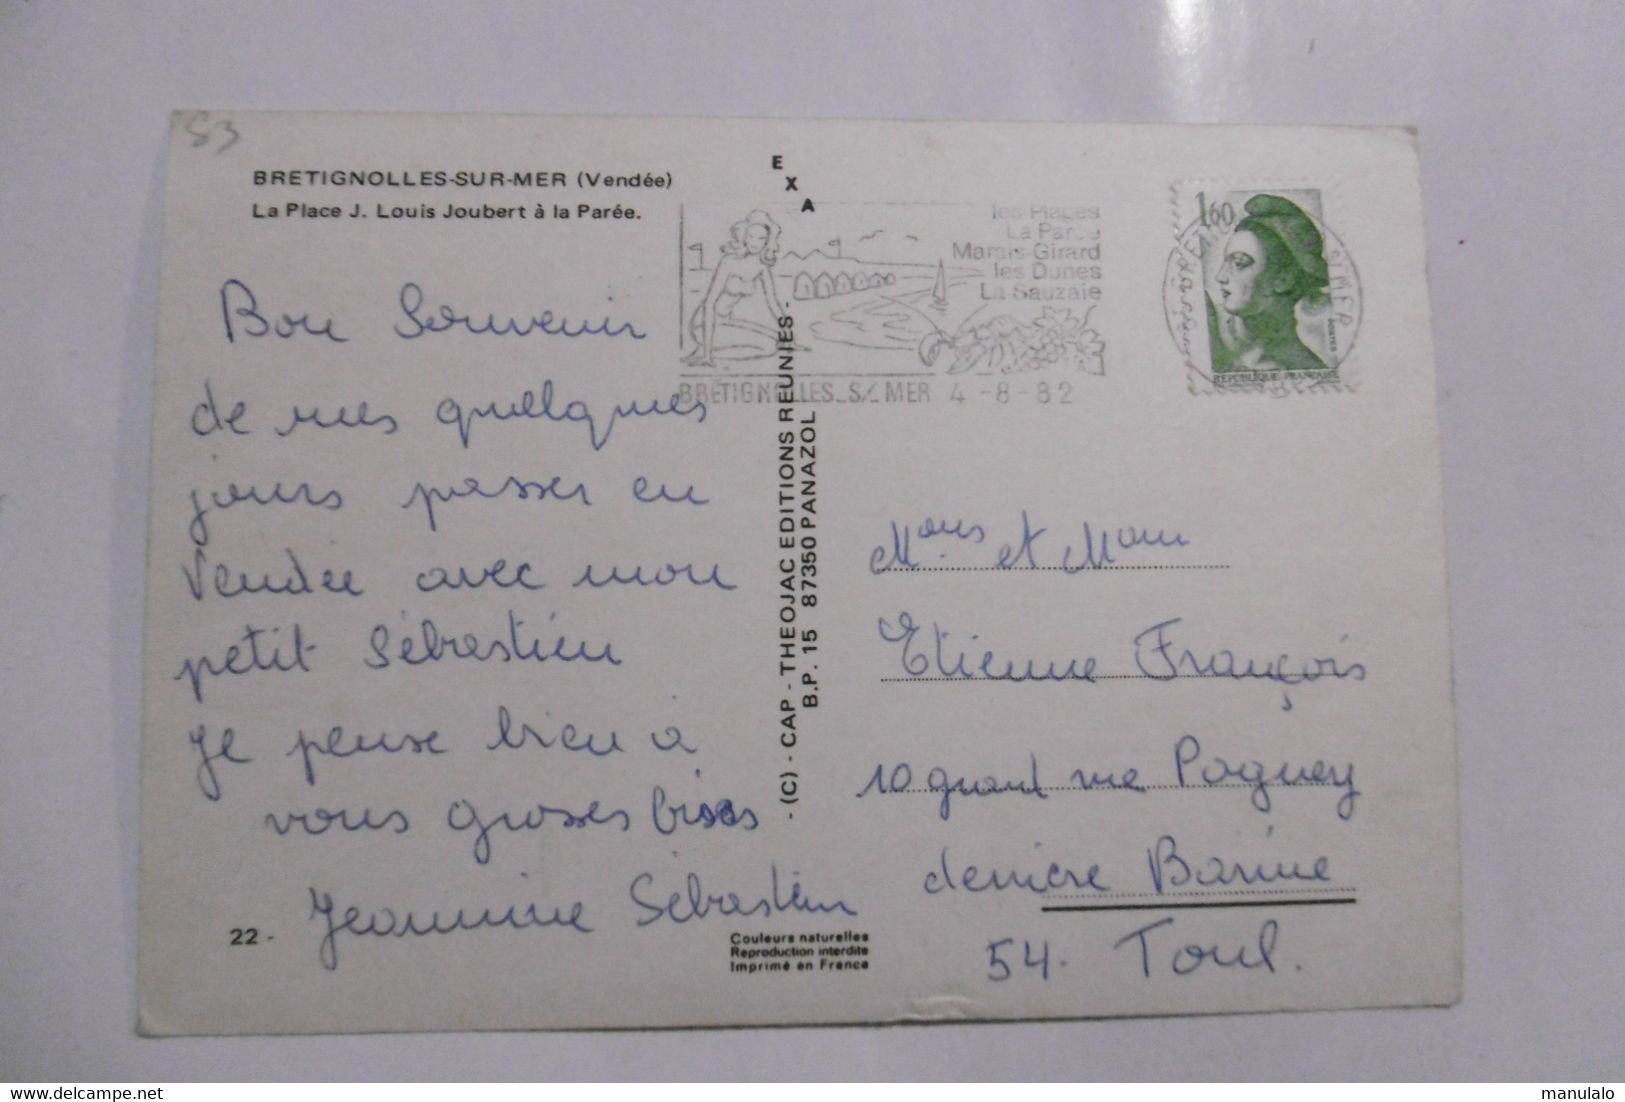 83
BRETIGNOLLES-SUR-MER (Vendée)
La Place J. Louis Joubert à la Parée.
EXA
les Plages
La Parée
Marais-Girard
les Dunes
La Sauzaie
BRETIGNOLLES_S/MER 4 -8-82
1,60
POSTES
REPUBLIQUE FRANÇAISE
S/MER
Bon Souvenir
de mes quelques
jours passer en
Vendée avec mon
petit Sébastien
Je pense bien à
vous grosses bises
Jeannine Sébastien
- (C) - CAP - THEOJAC EDITIONS REUNIES -
B.P. 15 87350 PANAZOL
Mons et Mam
Etienne François
10 grand rue Poguey
derrière Barine
54. Toul.
22 -
Couleurs naturelles
Reproduction interdite
Imprimé en France
delcampe.net
manulalo